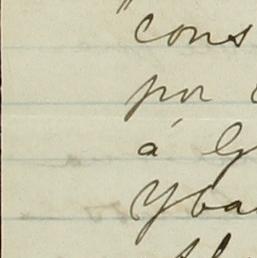 "cons
por
á G
Yba